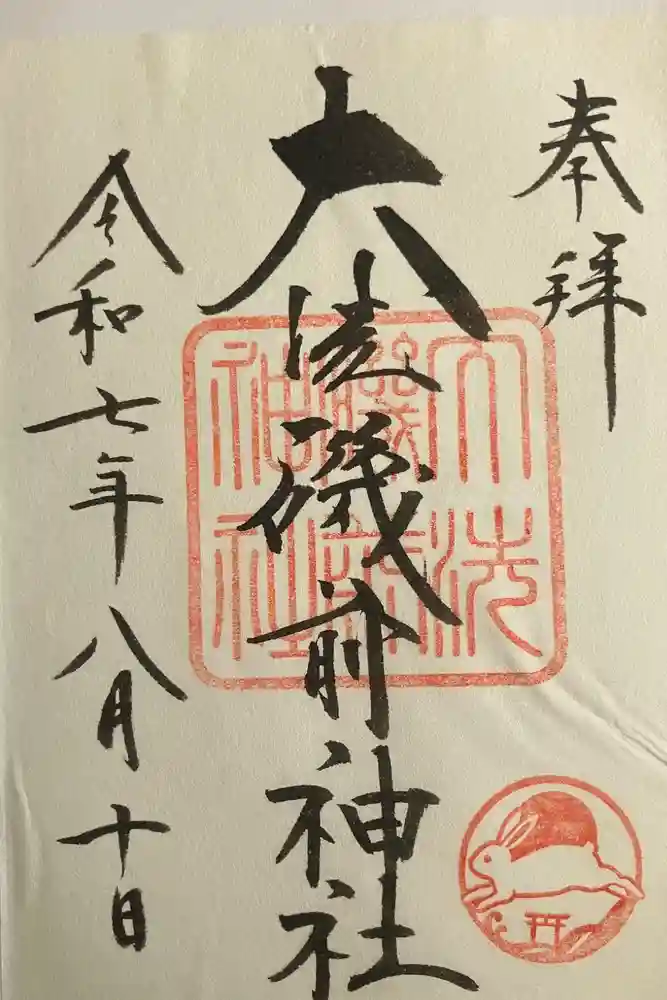 奉拝
大洗磯前神社
令和七年八月十日
大洗磯前神社